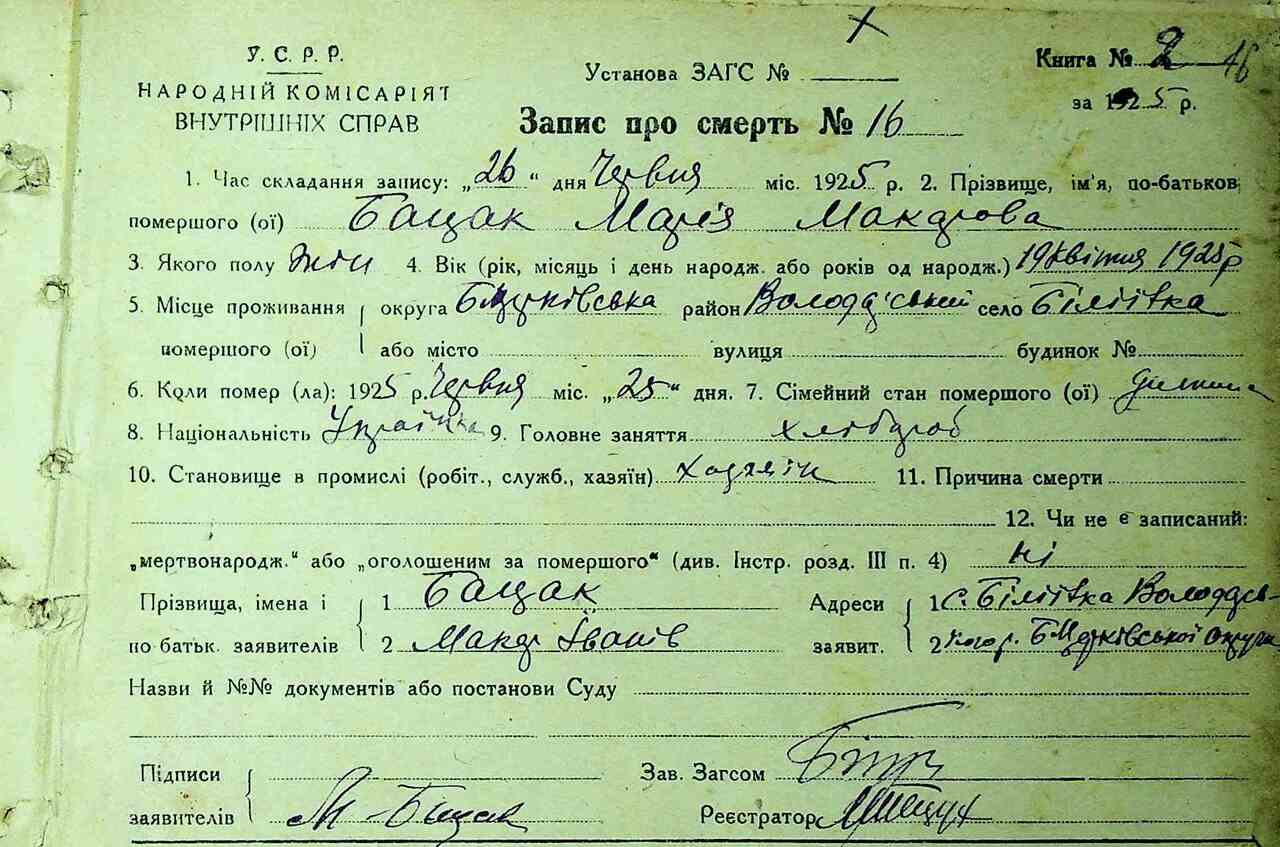 У. С. Р. Р.
НАРОДНІЙ КОМІСАРІЯТ
ВНУТРІШНІХ СПРАВ
Установа ЗАГС №
Книга № 2 16
за 1925 р.
Запис про смерть № 16
1. Час складання запису: „26" дня Червня міс. 1925 р. 2. Прізвище, ім'я, по-батьков.
помершого (ої) Бацак Марія Макарова
3. Якого полу Жін 4. Вік (рік, місяць і день народж. або років од народж.) 19 Квітня 1925 р
5. Місце проживання округа Бердичівська район Володарський село Біліївка
помершого (ої) або місто вулиця будинок №
6. Коли помер (ла): 1925 р. Червня міс. „25" дня. 7. Сімейний стан помершого (ої) дитина
8. Національність Українка 9. Головне заняття хлібороб
10. Становище в промислі (робіт., служб., хазяїн) хазяїн 11. Причина смерти
12. Чи не є записаний:
„мертвонародж." або „оголошеним за помершого" (див. Інстр. розд. III п. 4) ні
Прізвища, імена і 1 Бацак Адреси 1 с. Біліївка Володарсь-
по батьк. заявителів 2 Макар Іванів заявит. 2 Округи
Назви й №№ документів або постанови Суду
Підписи Зав. Загсом
заявителів М Бацак Реєстратор